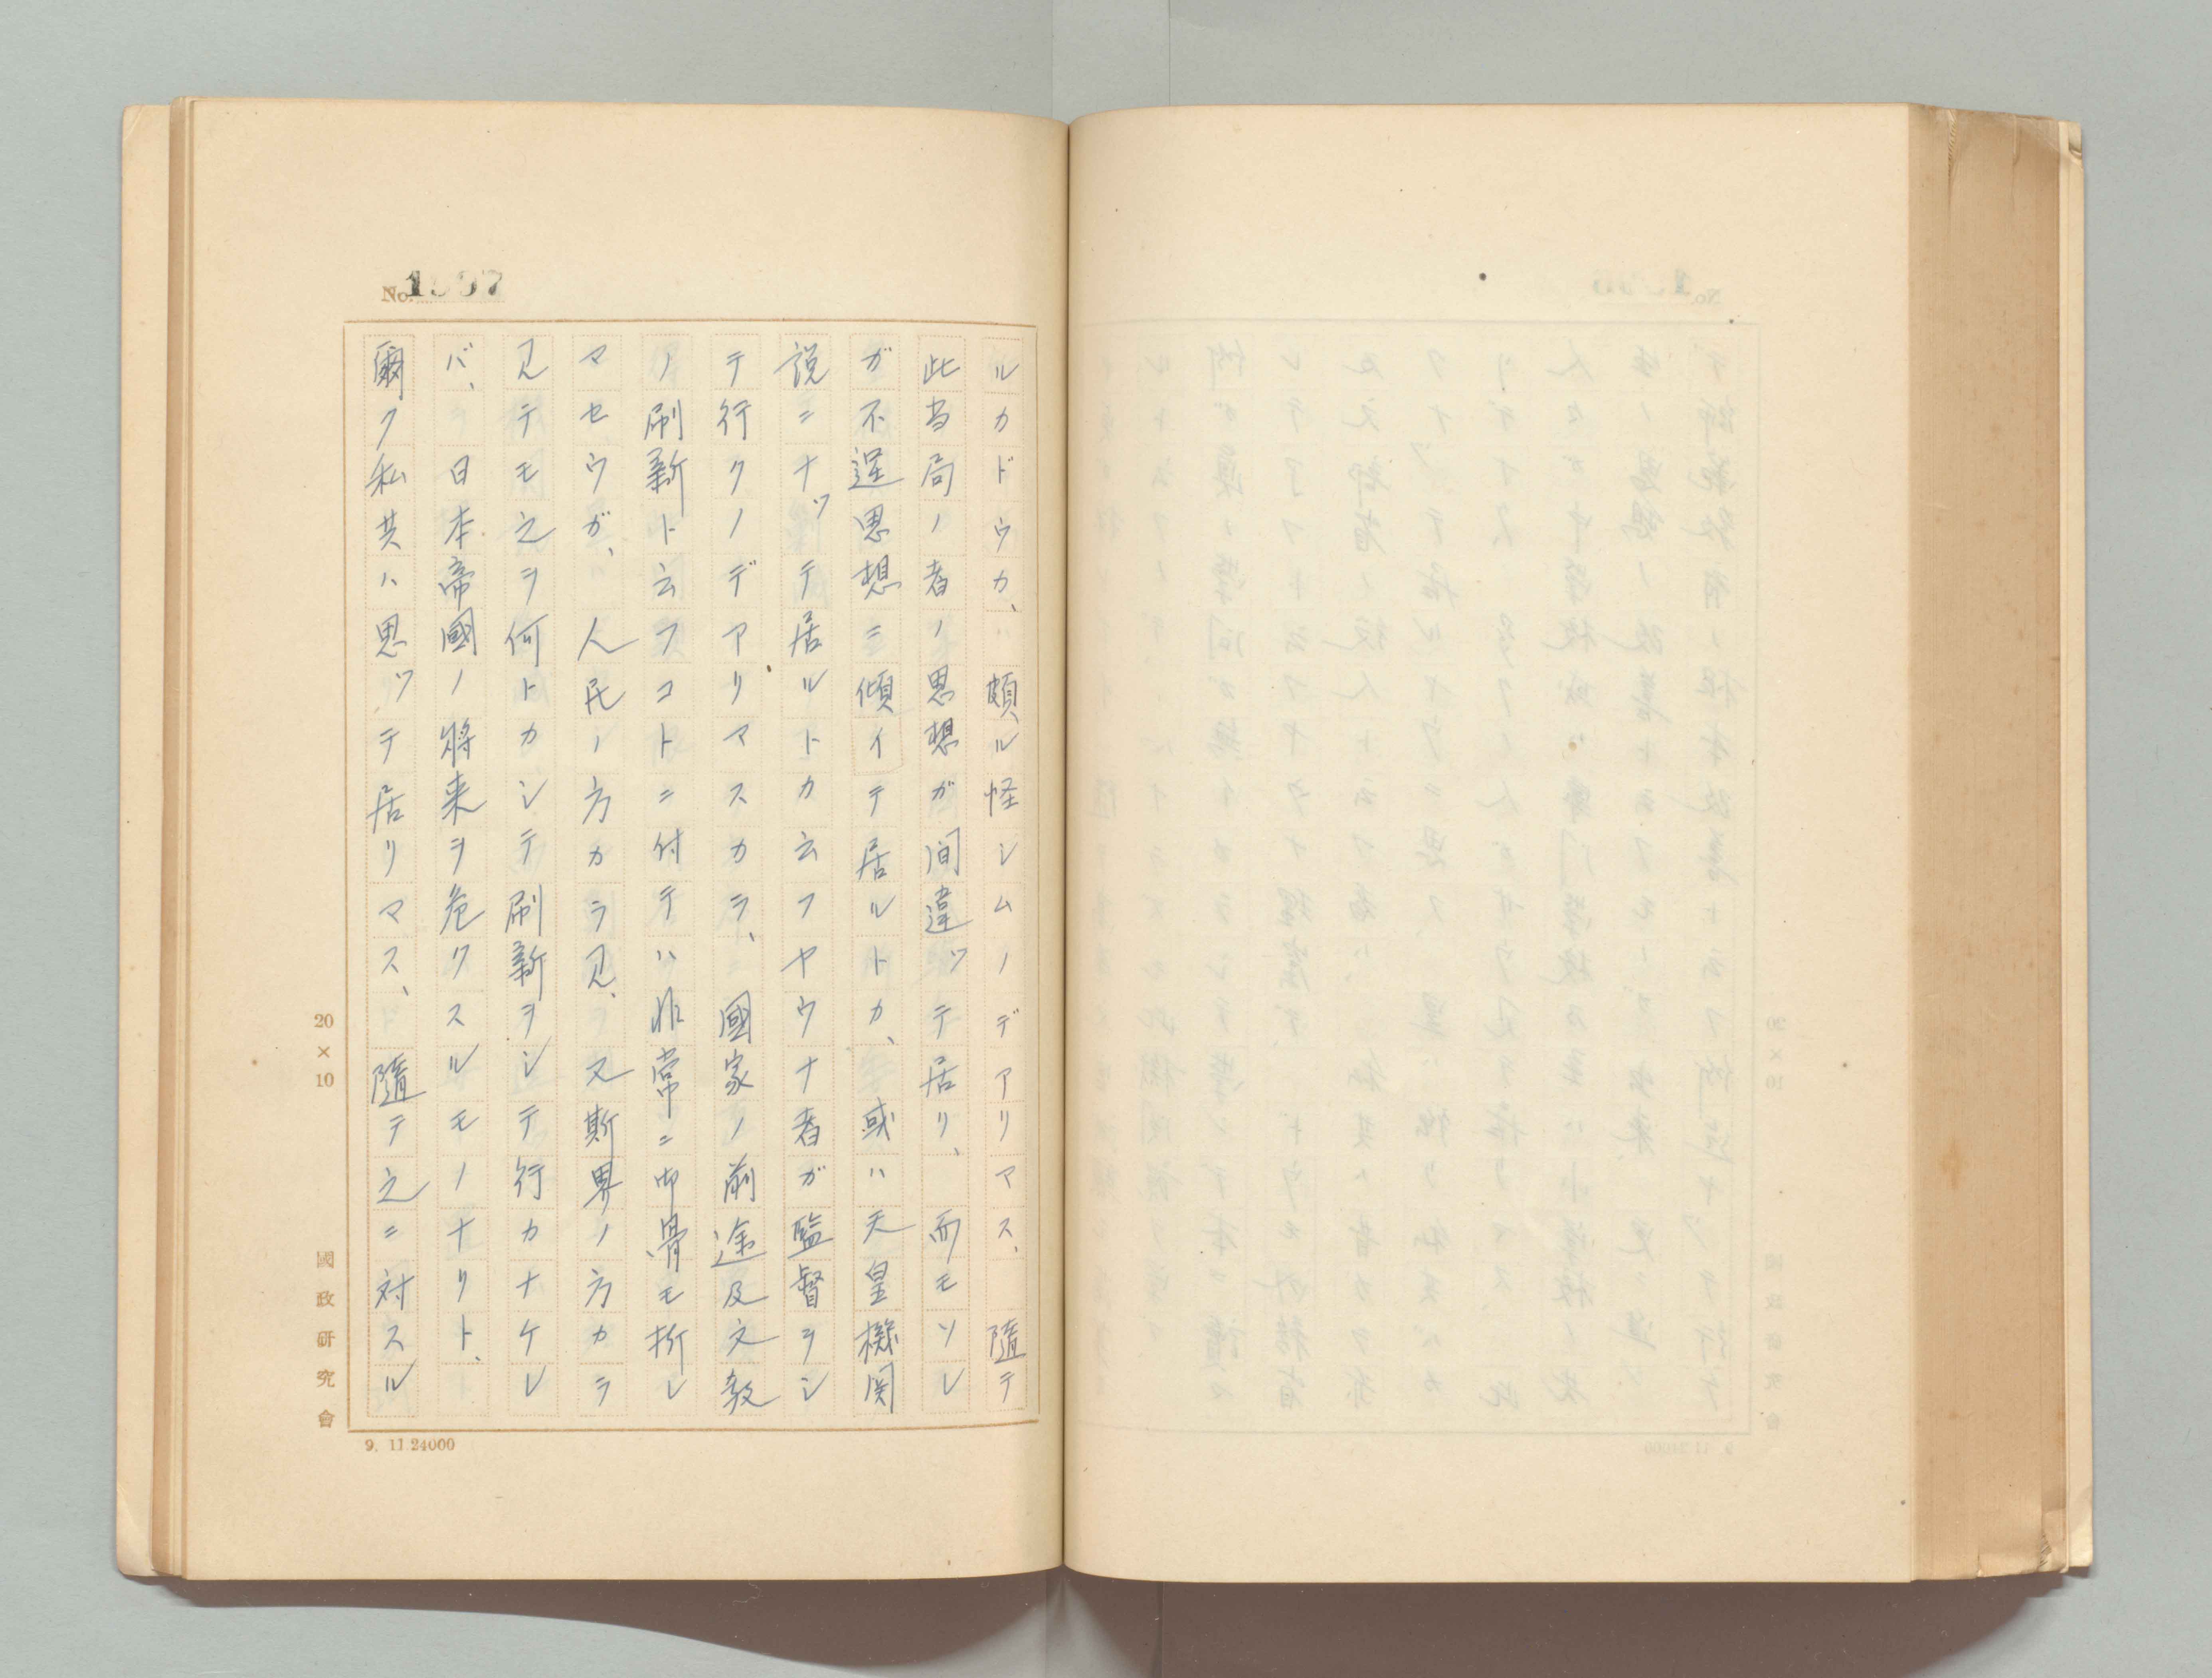 No. 1937
ルカドウカ、頗ル怪シムノデアリマス、隨テ
此当局ノ者ノ思想ガ間違ッテ居リ、而モソレ
ガ不逞思想ニ傾イテ居ルトカ、或ハ天皇機関
説ニナッテ居ルトカ云フヤウナ者ガ監督ヲシ
テ行クノデアリマスカラ、國家ノ前途及文教
ノ刷新ト云フコトニ付テハ非常ニ御骨モ折レ
マセウガ、人民ノ方カラ見、又斯界ノ方カラ
見テモ之ヲ何トカシテ刷新ヲシテ行カナケレ
バ、日本帝國ノ將来ヲ危クスルモノナリト、
爾ク私共ハ思ッテ居リマス、隨テ之ニ対スル
20×10
國政研究會
9. 11 24000